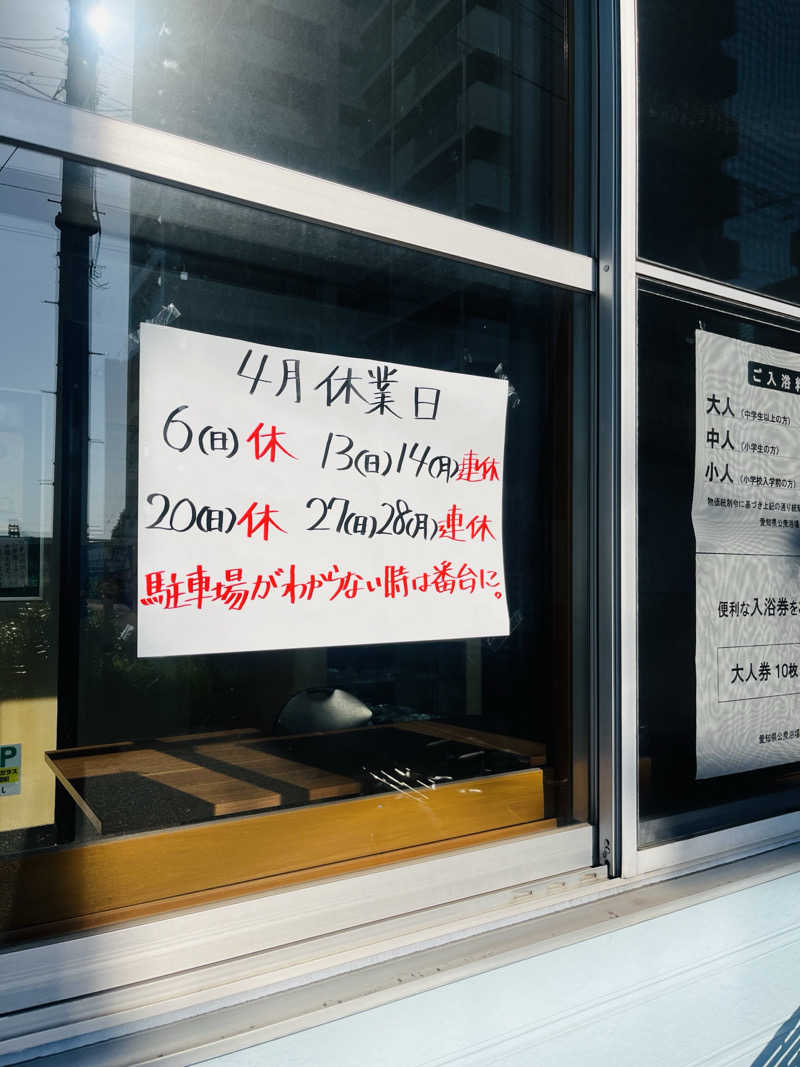 4月休業日
6(日)休 13(日)14(月)連休
20(日)休 27(日)28(月)連休
駐車場がわからない時は番台に。
ご入浴料
大人（中学生以上の方）
中人（小学生の方）
小人（小学校入学前の方）
物価統制令に基づき上記の通り統
愛知県公衆浴場
便利な入浴券を
大人券 10枚
愛知県公衆浴場
P